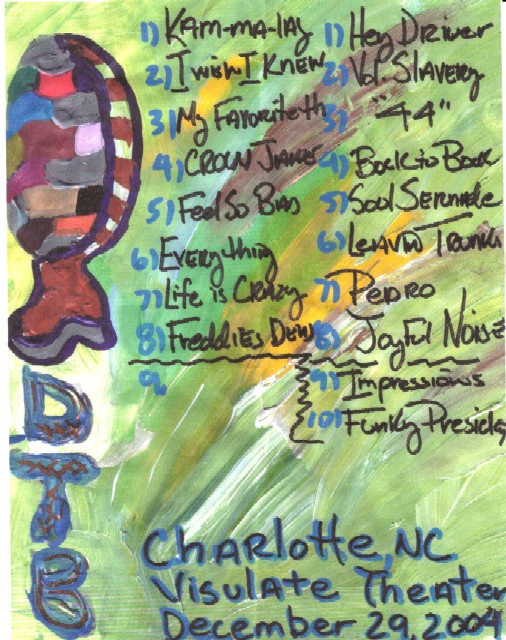 1) Kam-ma-lay
2) I wish I Knew
3) My Favorite th
4) Crow Jane
5) Feel So Bad
6) Everything
7) Life is Crazy
8) Freddies Dead
9)
1) Hey Driver
2) Vol. Slavery
3) "44"
4) Back to Back
5) Soul Serenade
6) Leavin Trunk
7) Pedro
8) Joyful Noise
9) Impressions
10) Funky Presid
DTB
Charlotte, NC
Visulate Theater
December 29, 2004